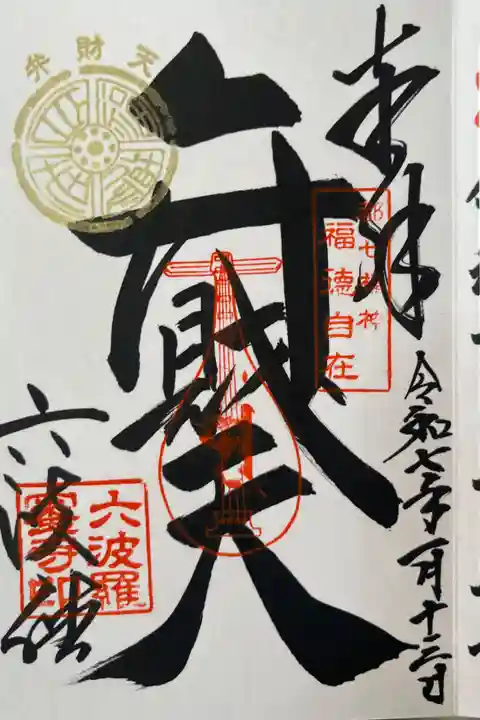 奉拝
都七福神
福徳自在
令和七年一月十三日
弁財天
弁財天
六波
六波羅
蜜寺印